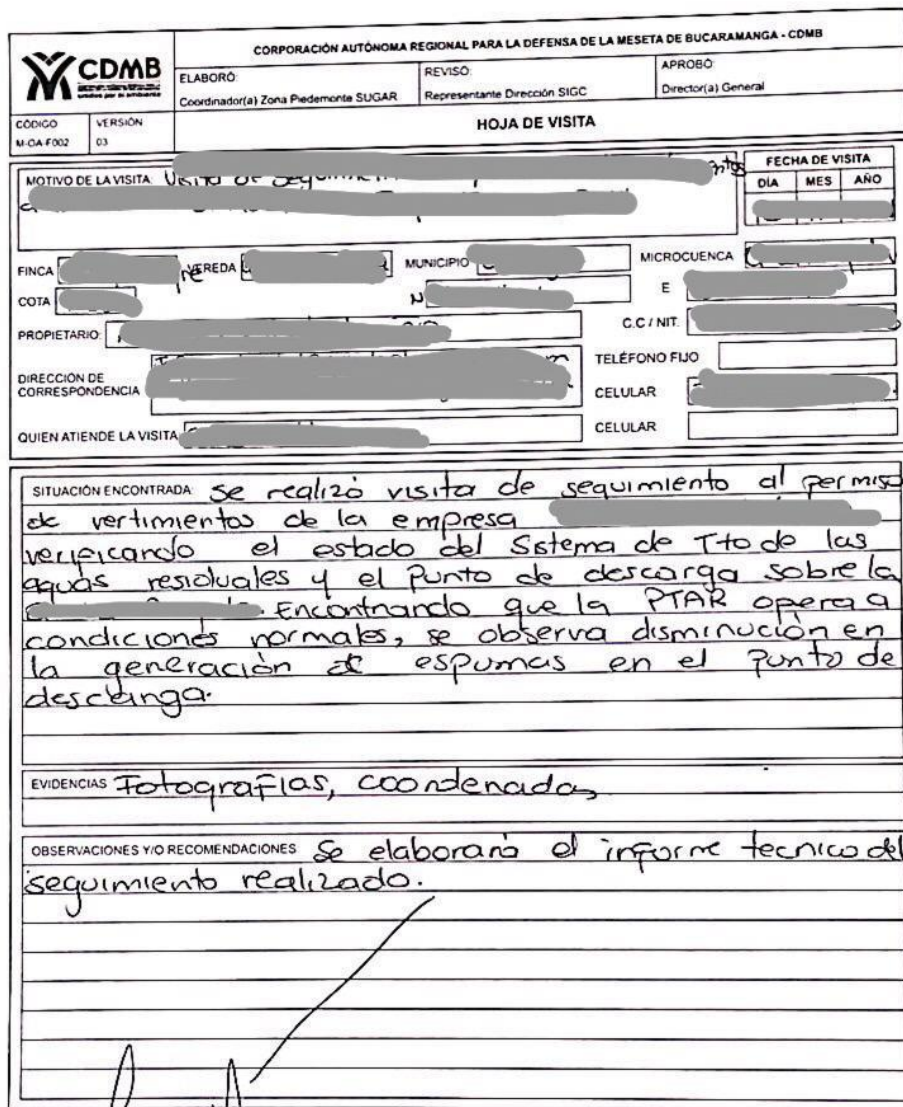 CDMB
CORPORACIÓN AUTÓNOMA REGIONAL PARA LA DEFENSA DE LA MESETA DE BUCARAMANGA - CDMB
ELABORÓ:
Coordinador(a) Zona Piedemonte SUGAR
REVISÓ:
Representante Dirección SIGC
APROBÓ:
Director(a) General
CÓDIGO
M-OA-F002
VERSIÓN
03
HOJA DE VISITA
MOTIVO DE LA VISITA: Visita de
FECHA DE VISITA
DÍA MES AÑO
FINCA VEREDA MUNICIPIO MICROCUENCA
COTA N E
PROPIETARIO: C.C / NIT.
DIRECCIÓN DE
CORRESPONDENCIA
TELÉFONO FIJO
CELULAR
QUIEN ATIENDE LA VISITA CELULAR
SITUACIÓN ENCONTRADA: Se realizó visita de seguimiento al permiso
de vertimientos de la empresa
verificando el estado del Sistema de Tto de las
aguas residuales y el Punto de descarga sobre la
Encontrando que la PTAR opera a
condiciones normales, se observa disminución en
la generación de espumas en el Punto de
descarga.
EVIDENCIAS Fotografías, coordenadas
OBSERVACIONES Y/O RECOMENDACIONES Se elaborará el informe tecnico del
seguimiento realizado.